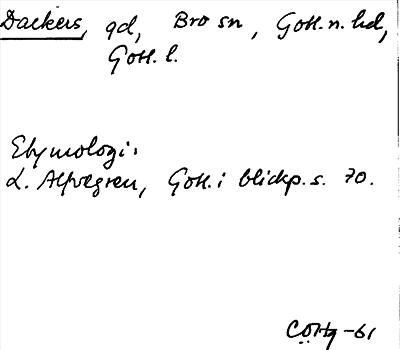 Dackers, gd, Bro sn, Gotl. n. hd,
Gotl. l.
Etymologi:
L. Alfvegren, Gotl. i blickp. s. 70.
CÖHg -61